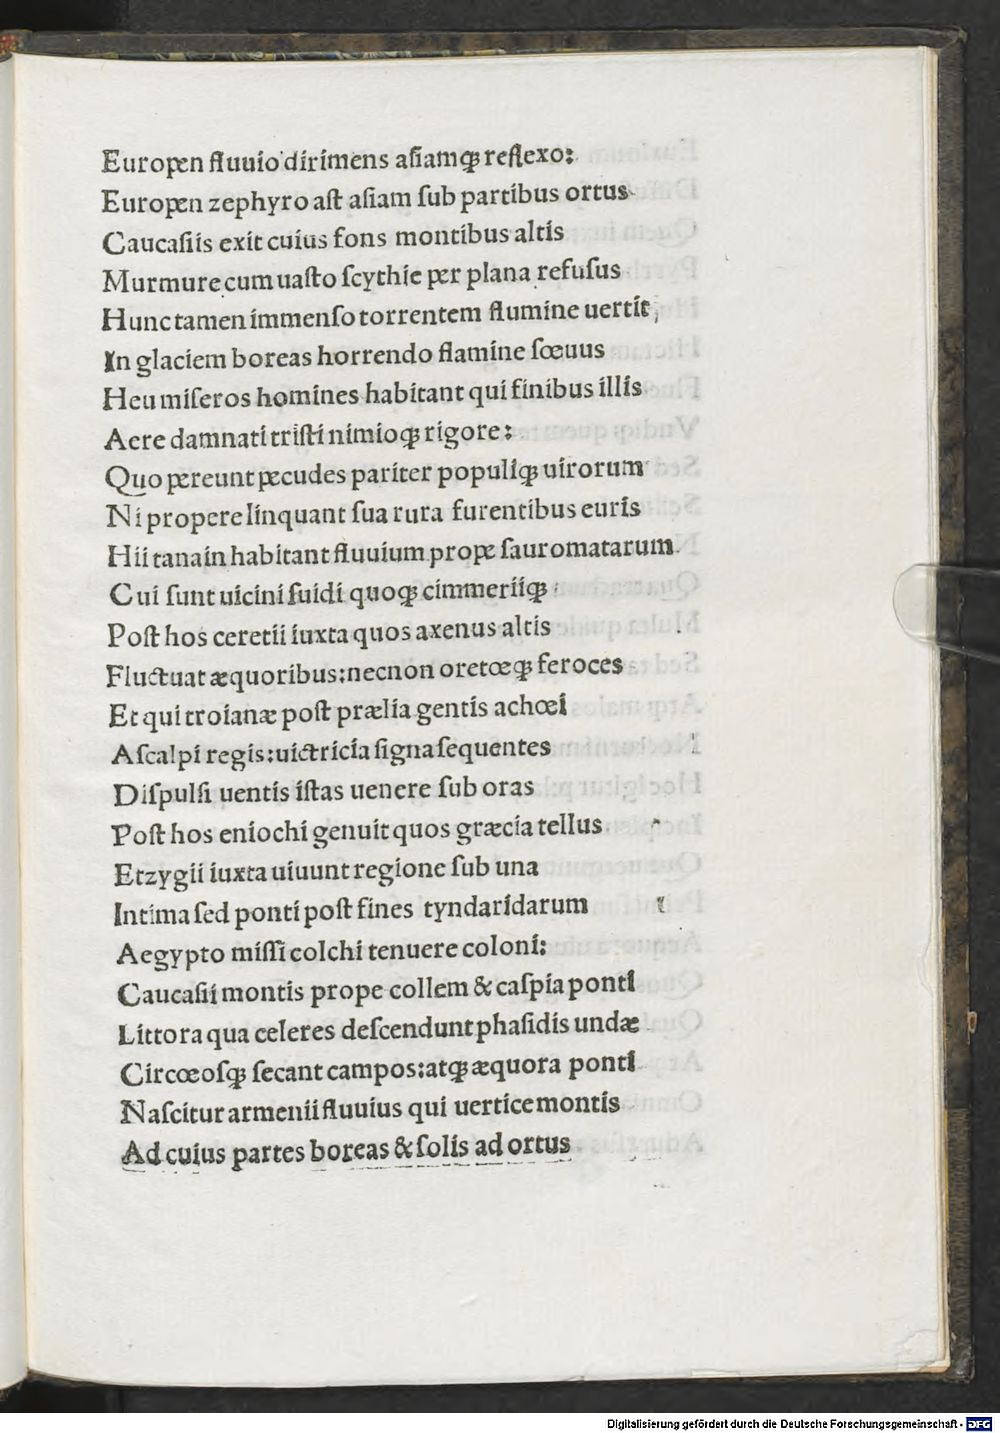 Europen fluuio dirimens aſiamqꝫ reflexo:
Europen zephyro aſt aſiam ſub partibus ortus
Caucaſiis exit cuius fons montibus altis
Murmure cum uaſto ſcythie per plana refuſus
Hunc tamen immenſo torrentem flumine uertit
In glaciem boreas horrendo flamine ſœuus
Heu miſeros homines habitant qui finibus illis
Aere damnati triſti nimioqꝫ rigore:
Quo pereunt pecudes pariter populiqꝫ uirorum
Ni propere linquant ſua rura furentibus euris
Hii tanain habitant fluuium prope ſauromatarum
Cui ſunt uicini ſuidi quoqꝫ cimmeriiqꝫ
Poſt hos ceretii iuxta quos axenus altis
Fluctuat æquoribus:necnon oretœqꝫ feroces
Et qui troianæ poſt prælia gentis achœi
Aſcalpi regis:uictricia ſigna ſequentes
Diſpulſi uentis iſtas uenere ſub oras
Poſt hos eniochi genuit quos græcia tellus
Et zygii iuxta uiuunt regione ſub una
Intima ſed ponti poſt fines tyndaridarum
Aegypto miſſi colchi tenuere coloni:
Caucaſii montis prope collem & caſpia ponti
Littora qua celeres deſcendunt phaſidis undæ
Circœoſqꝫ ſecant campos:atqꝫ æquora ponti
Naſcitur armenii fluuius qui uertice montis
Ad cuius partes boreas & ſolis ad ortus
Digitalisierung gefördert durch die Deutsche Forschungsgemeinschaft - DFG